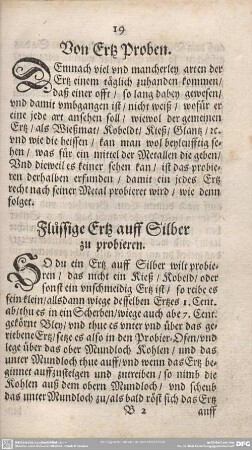 19
Von Ertz Proben.
DEmnach viel vnd mancherley arten der
Ertz einem täglich zuhanden kommen/
daß einer offt / so lang dabey gewesen/
vnd damit vmbgangen ist / nicht weiß / wofür er
eine jede art ansehen soll / wiewol der gemeinen
Ertz / als Wießmat / Kobeldt / Kieß / Glantz / ꝛc.
vnd wie die heissen / kan man wol beyleufftig se-
hen / was für ein mittel der Metallen die geben/
Vnd dieweil es keiner sehen kan / ist das probie-
ren derhalben erfunden / damit ein jedes Ertz
recht nach seiner Metal probieret wird / wie denn
folget.
Flüssige Ertz auff Silber
zu probieren.
SO du ein Ertz auff Silber wilt probie-
ren / das nicht ein Kieß / Kobeld / oder
sonst ein vnschmeidig Ertz ist / so reibe es
fein klein / alsdann wiege desselben Ertzes 1. Cent.
ab / thu es in ein Scherben / wiege auch abe 7. Cent.
gekörnt Bley / vnd thue es vnter vnd über das ge-
riebene Ertz / setze es also in den Probier-Ofen / vnd
lege über das ober Mundloch Kohlen / vnd das
vnter Mundloch thue auff / vnd wenn das Ertz be-
ginnet auffzusteigen vnd zutreiben / so nimb die
Kohlen auß dem obern Mundloch / vnd scheub
das vnter Mundloch zu / als bald röst sich das Ertz
B 2 auff